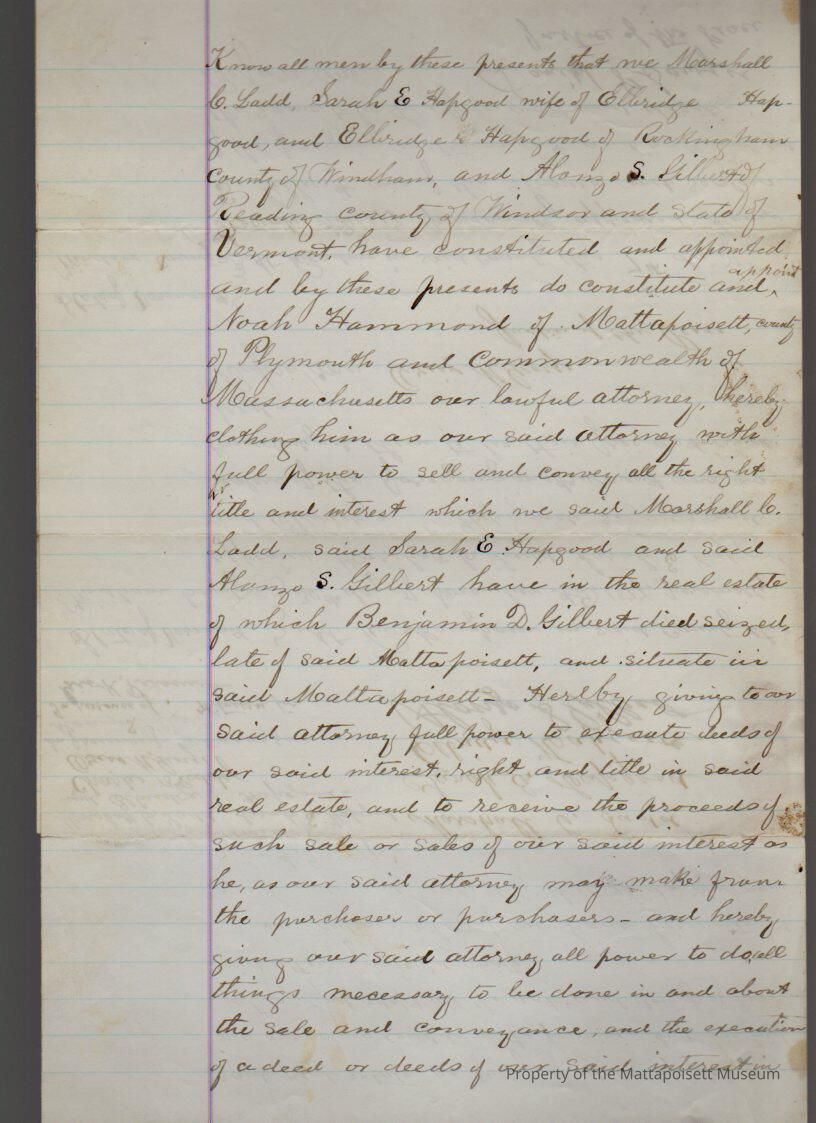 Know all men by these presents that we Marshall
C. Ladd, Sarah E Hapgood wife of Elbridge Hap-
good, and Elbridge G Hapgood of Rockingham
County of Windham, and Alonzo S. Gilbert of
Reading county of Windsor and State of
Vermont, have constituted and appointed
appoint
and by these presents do constitute and
Noah Hammond of Mattapoisett, county
of Plymouth and Commonwealth of
Massachusetts our lawful attorney, hereby
clothing him as our said attorney with
full power to sell and convey all the right
title and interest which we said Marshall C.
Ladd, said Sarah E Hapgood and said
Alonzo S. Gilbert have in the real estate
of which Benjamin D. Gilbert died seized,
late of said Mattapoisett, and situate in
said Mattapoisett - Hereby giving to our
said attorney full power to execute deeds of
our said interest, right and title in said
real estate, and to receive the proceeds of
such sale or sales of our said interest as
he, as our said attorney may make from
the purchaser or purchasers - and hereby
giving our said attorney all power to do all
things necessary to be done in and about
the sale and conveyance, and the execution
of a deed or deeds of our said interest in
Property of the Mattapoisett Museum